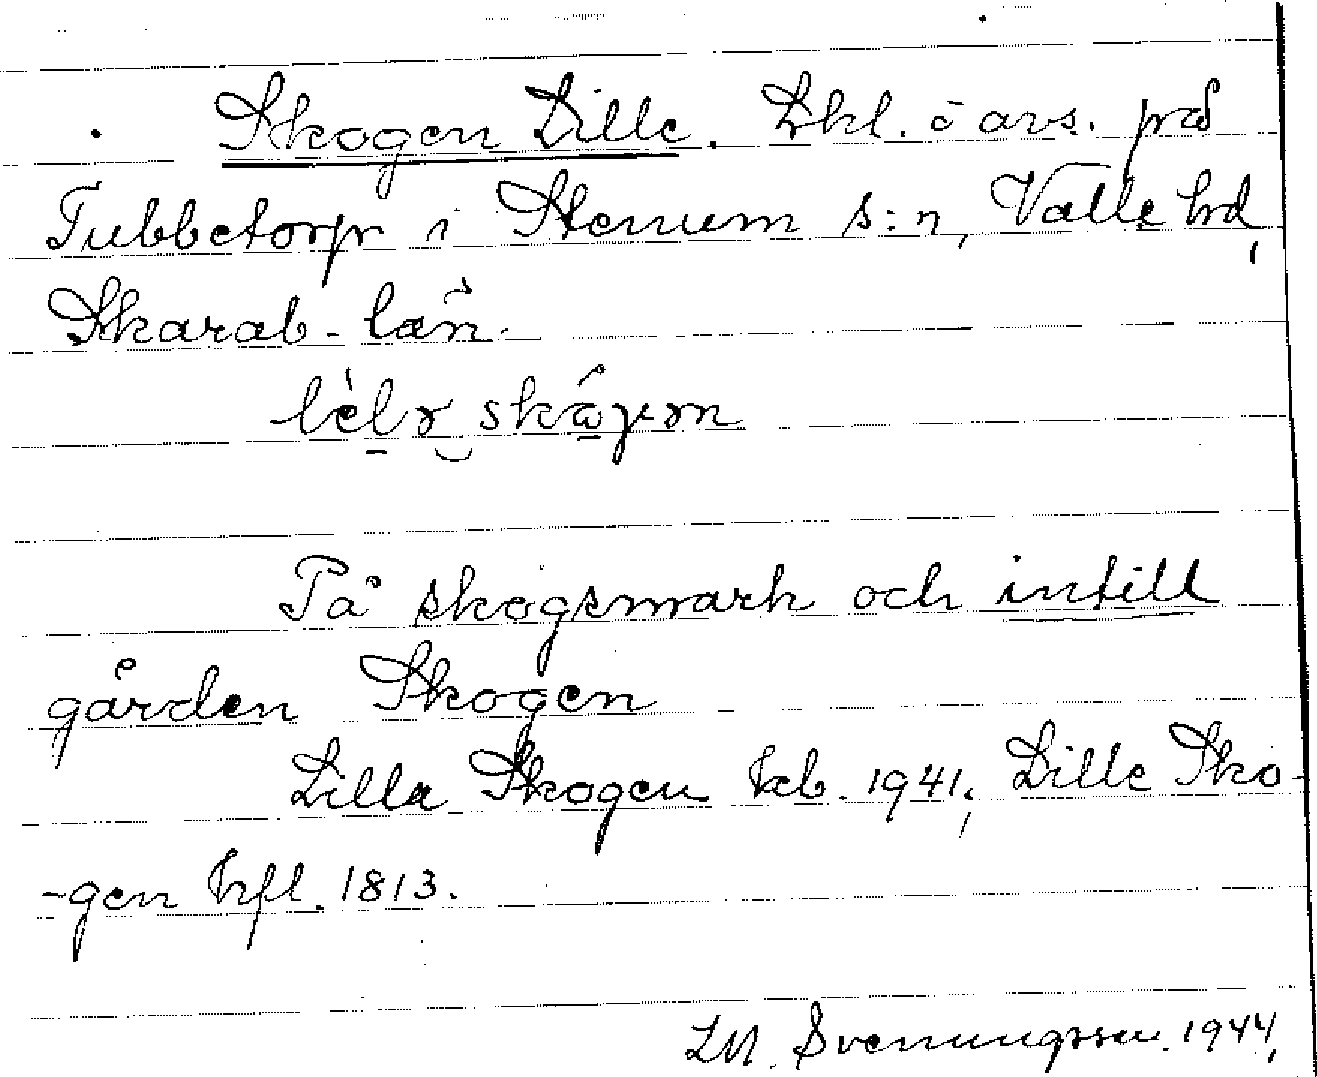 Skogen Lille. Lkl. o avs. på
Tubbetorp i Stenum s:n, Valle hd,
Skarab. län.
På skogsmark och intill
gården Skogen
Lilla Skogen kb. 1941; Lille Sko-
-gen hfl. 1813.
LM. Svenungsson. 1944,